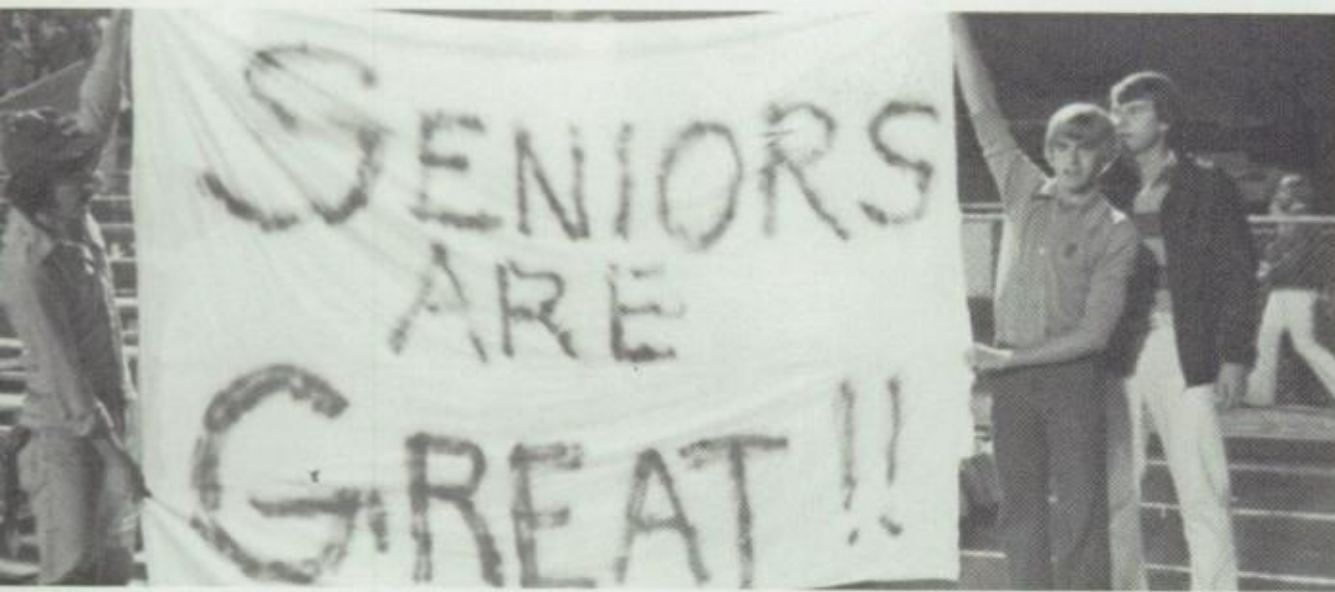 SENIORS
ARE
GREAT!!